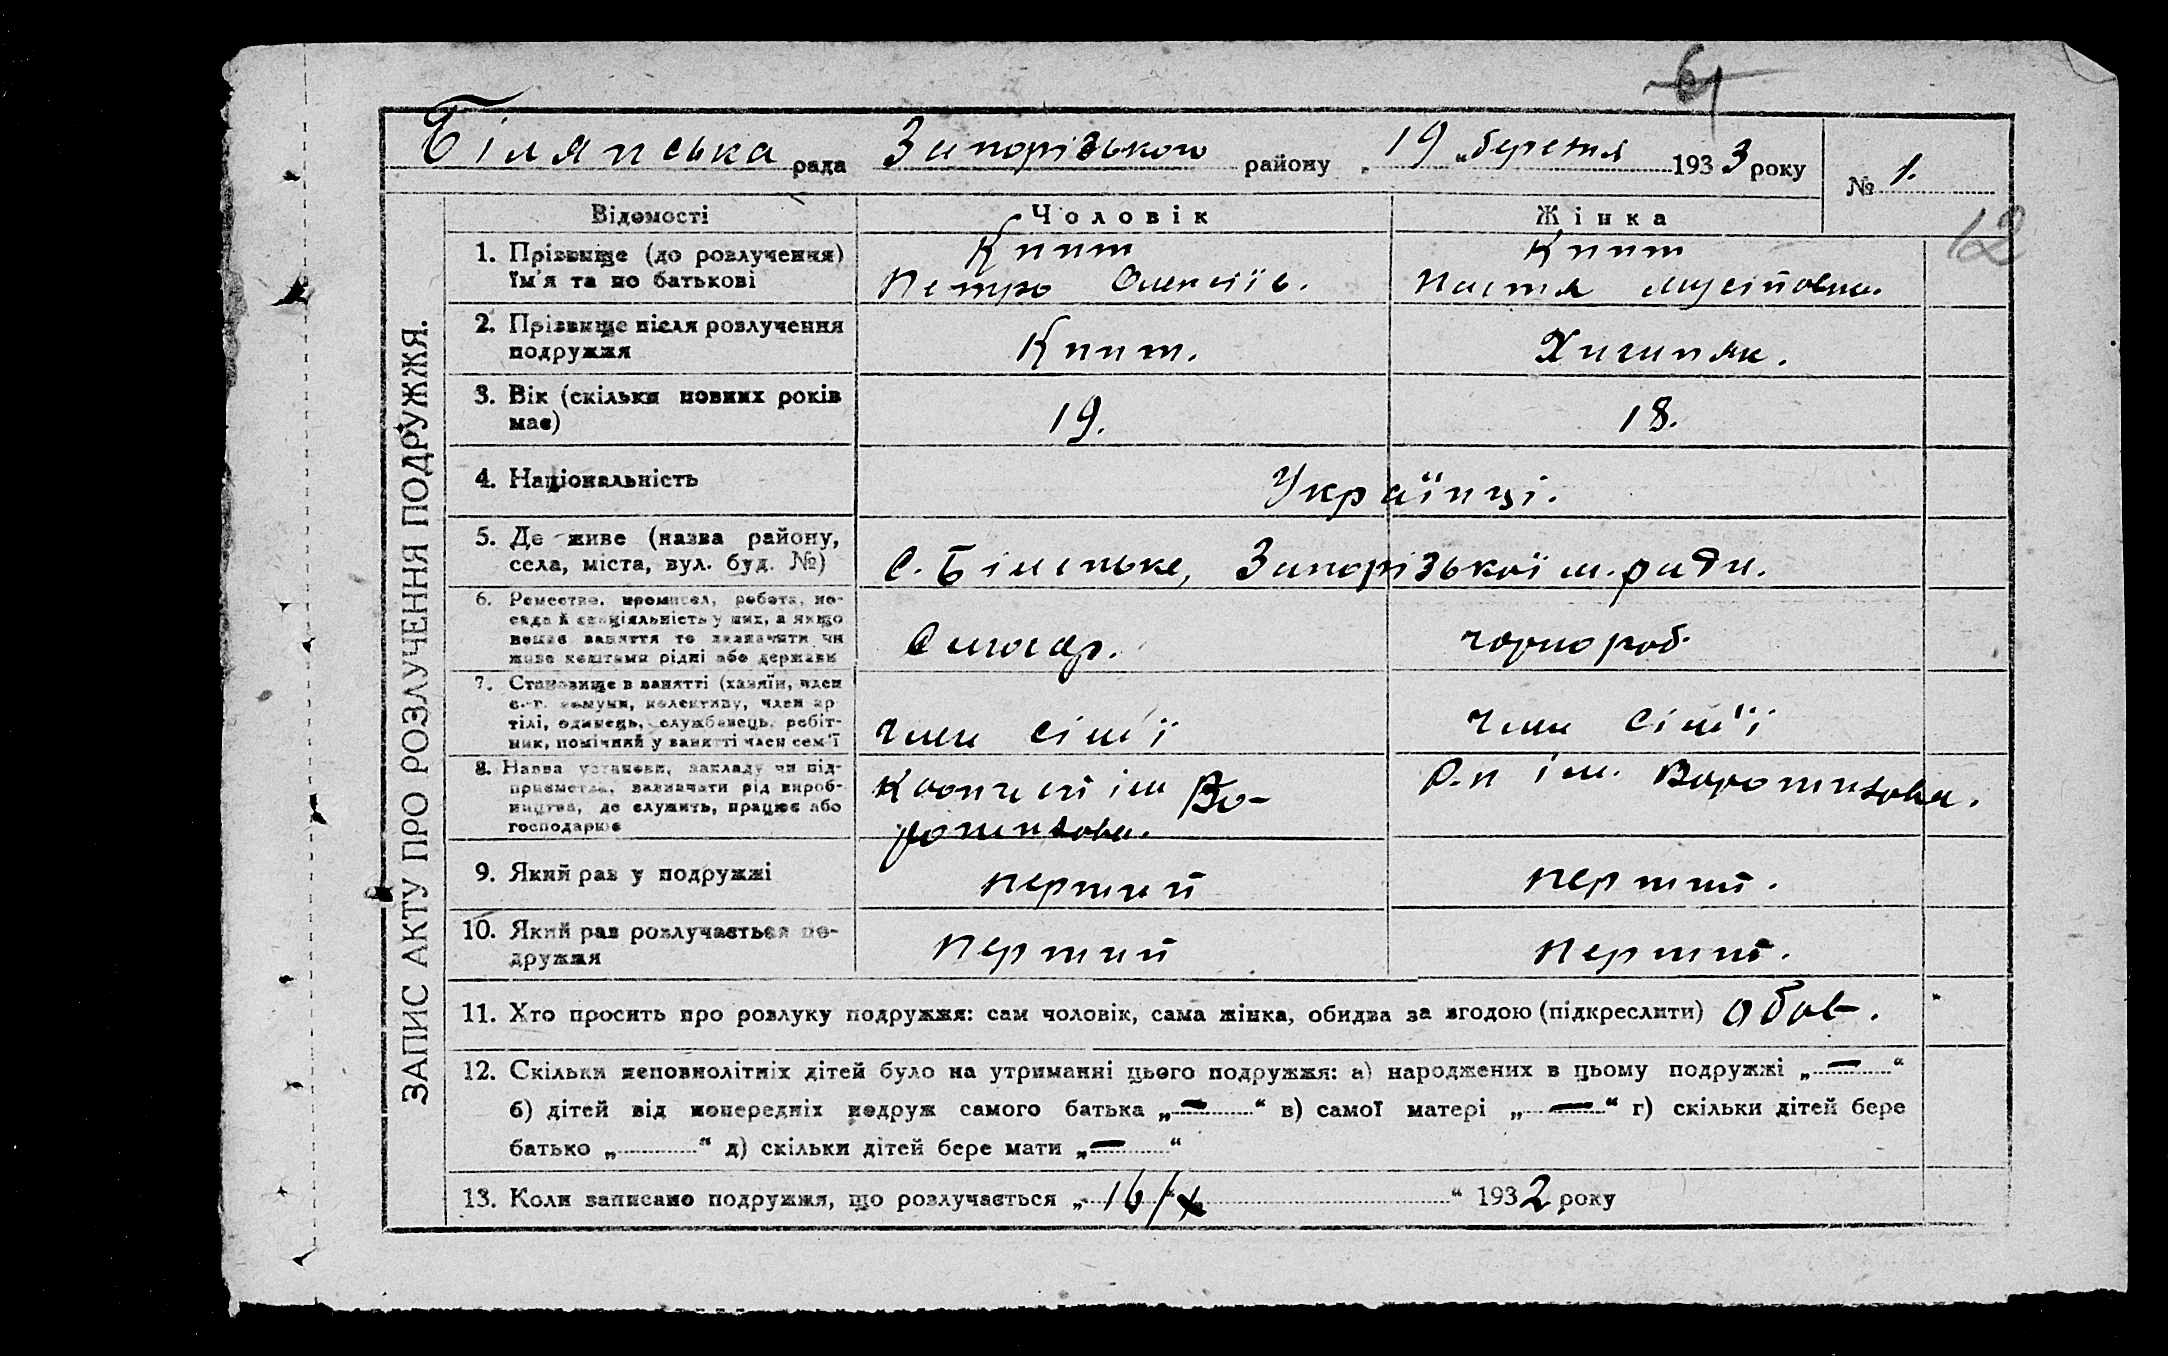 61
Білянська рада Запорізького району „ 19 „ березня 1933 року № 1.
12
ЗАПИС АКТУ ПРО РОЗЛУЧЕННЯ ПОДРУЖЖЯ.
Відомості Чоловік Жінка
1. Прізвище (до розлучення) Книт Книт
ім'я та по батькові Петро Олексіїв. Настя Мусіївна.
2. Прізвище після розлучення
подружжя Книт.
3. Вік (скільки повних років
має) 19. 18.
4. Національність Українці.
5. Де живе (назва району,
села, міста, вул. буд. №) С. Біленьке, Запорізької м. ради.
6. Ремество, промисел, робота, по-
сада й спеціяльність у них, а якщо
немає заняття то зазначити чи
живе коштами рідні або держави чорнороб.
7. Становище в занятті (хазяїн, член
с.-г. комуни, колективу, член ар-
тілі, одинець, службовець, робіт-
ник, помічний у занятті член сем'ї член сім'ї член сім'ї
8. Назва установи, закладу чи під-
приємства, зазначити рід вироб-
ництва, де служить, працює або
господарює ім Во-
рошилова. ім. Ворошилова.
9. Який раз у подружжі перший перший.
10. Який раз розлучається по-
дружжя перший перший.
11. Хто просить про розлуку подружжя: сам чоловік, сама жінка, обидва за згодою (підкреслити) обов.
12. Скільки неповнолітніх дітей було на утриманні цього подружжя: а) народжених в цьому подружжі „ — “
б) дітей від попередніх подруж самого батька „ — “ в) самої матері „ — “ г) скільки дітей бере
батько „ “ д) скільки дітей бере мати „ — “
13. Коли записано подружжя, що розлучається „ 16/X “ 1932 року